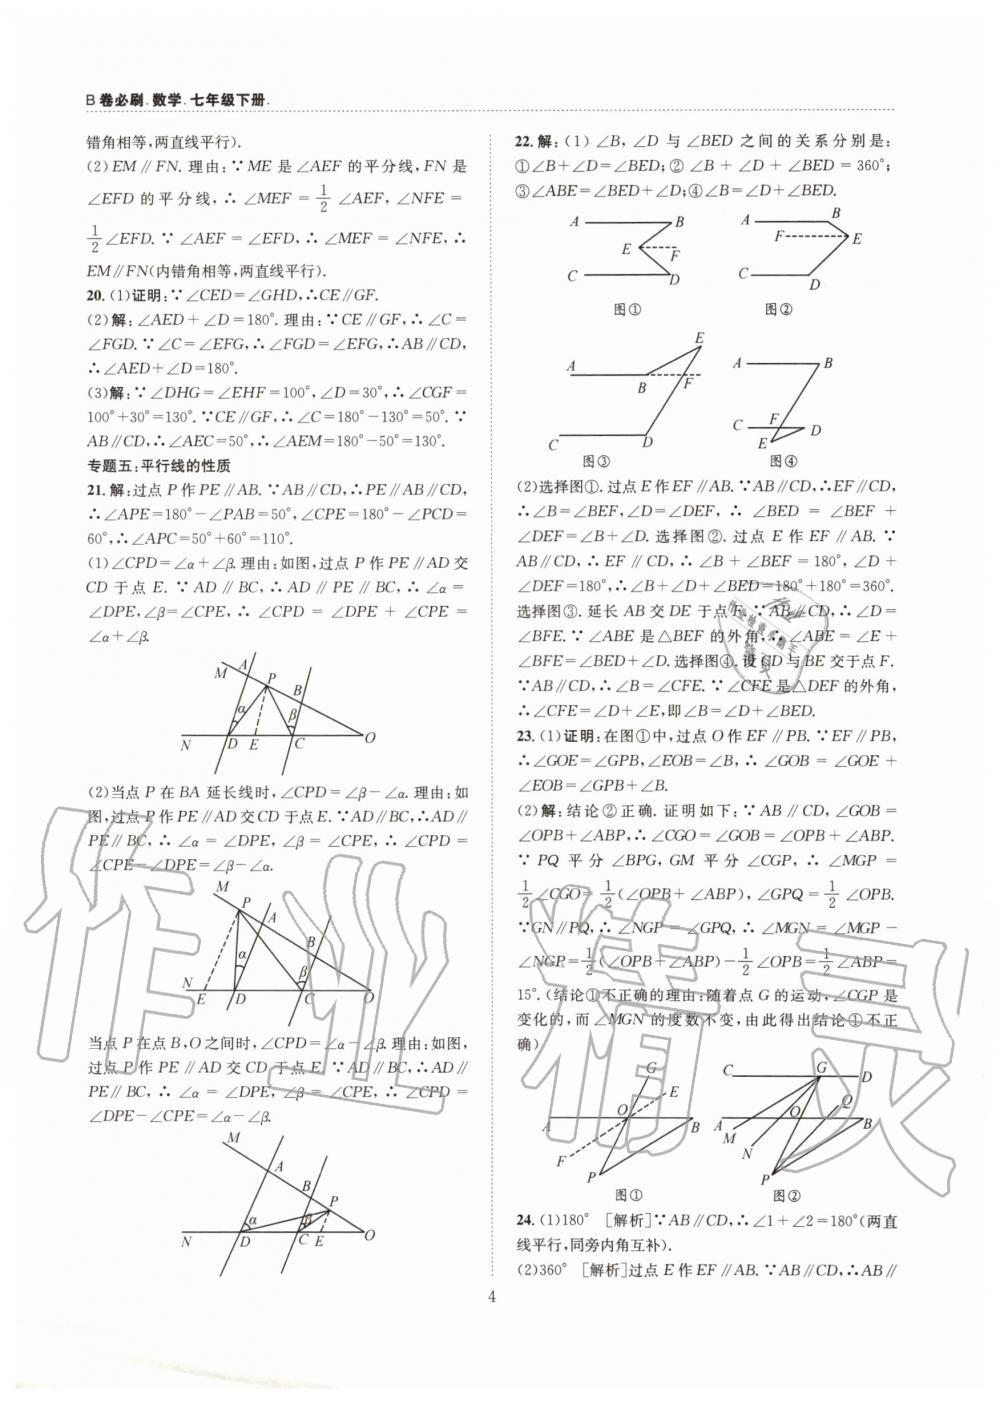 B 卷必刷.数学.七年级下册.
错角相等,两直线平行).
(2)EM∥FN. 理由:∵ME 是∠AEF 的平分线,FN 是
∠EFD 的平分线,∴∠MEF=1/2∠AEF,∠NFE=
1/2∠EFD.∵∠AEF=∠EFD,∴∠MEF=∠NFE,∴
EM∥FN(内错角相等,两直线平行).
20.(1)证明:∵∠CED=∠GHD,∴CE∥GF.
(2)解:∠AED+∠D=180°.理由:∵CE∥GF,∴∠C=
∠FGD.∵∠C=∠EFG,∴∠FGD=∠EFG,∴AB∥CD,
∴∠AED+∠D=180°.
(3)解:∵∠DHG=∠EHF=100°,∠D=30°,∴∠CGF=
100°+30°=130°.∵CE∥GF,∴∠C=180°-130°=50°.∵
AB∥CD,∴∠AEC=50°,∴∠AEM=180°-50°=130°.
专题五:平行线的性质
21.解:过点 P 作 PE∥AB.∵AB∥CD,∴PE∥AB∥CD,
∴∠APE=180°-∠PAB=50°,∠CPE=180°-∠PCD=
60°,∴∠APC=50°+60°=110°.
(1)∠CPD=∠α+∠β.理由:如图,过点 P 作 PE∥AD 交
CD 于点 E.∵AD∥BC,∴AD∥PE∥BC,∴∠α=
∠DPE,∠β=∠CPE,∴∠CPD=∠DPE+∠CPE=
∠α+∠β.
M A P B α β N D E C O
(2)当点 P 在 BA 延长线时,∠CPD=∠β-∠α.理由:如
图,过点 P 作 PE∥AD 交 CD 于点 E.∵AD∥BC,∴AD∥
PE∥BC,∴∠α=∠DPE,∠β=∠CPE,∴∠CPD=
∠CPE-∠DPE=∠β-∠α.
M P A B α β N E D C O
当点 P 在点 B,O 之间时,∠CPD=∠α-∠β.理由:如图,
过点 P 作 PE∥AD 交 CD 于点 E.∵AD∥BC,∴AD∥
PE∥BC,∴∠α=∠DPE,∠β=∠CPE,∴∠CPD=
∠DPE-∠CPE=∠α-∠β.
M A B P α β N D C E O
22.解:(1)∠B,∠D 与∠BED 之间的关系分别是:
①∠B+∠D=∠BED;②∠B+∠D+∠BED=360°;
③∠ABE=∠BED+∠D;④∠B=∠D+∠BED.
A B E F C D
图①
A B F E C D
图②
E A B F C D
图③
A B C F D E
图④
(2)选择图①.过点 E 作 EF∥AB.∵AB∥CD,∴EF∥CD,
∴∠B=∠BEF,∠D=∠DEF,∴∠BED=∠BEF+
∠DEF=∠B+∠D.选择图②.过点 E 作 EF∥AB.∵
AB∥CD,∴EF∥CD,∴∠B+∠BEF=180°,∠D+
∠DEF=180°,∴∠B+∠D+∠BED=180°+180°=360°.
选择图③.延长 AB 交 DE 于点 F.∵AB∥CD,∴∠D=
∠BFE.∵∠ABE 是△BEF 的外角,∴∠ABE=∠E+
∠BFE=∠BED+∠D.选择图④.设 CD 与 BE 交于点 F.
∵AB∥CD,∴∠B=∠CFE.∵∠CFE 是△DEF 的外角,
∴∠CFE=∠D+∠E,即∠B=∠D+∠BED.
23.(1)证明:在图①中,过点 O 作 EF∥PB.∵EF∥PB,
∴∠GOE=∠GPB,∠EOB=∠B,∴∠GOB=∠GOE+
∠EOB=∠GPB+∠B.
(2)解:结论②正确.证明如下:∵AB∥CD,∠GOB=
∠OPB+∠ABP,∴∠CGO=∠GOB=∠OPB+∠ABP.
∵PQ 平分∠BPG,GM 平分∠CGP,∴∠MGP=
1/2∠CGO=1/2(∠OPB+∠ABP),∠GPQ=1/2∠OPB.
∵GN∥PQ,∴∠NGP=∠GPQ,∴∠MGN=∠MGP-
∠NGP=1/2(∠OPB+∠ABP)-1/2∠OPB=1/2∠ABP=
15°.(结论①不正确的理由:随着点 G 的运动,∠CGP 是
变化的,而∠MGN 的度数不变,由此得出结论①不正
确)
G E A O B F P
图①
C G D A M O Q B N P
图②
24.(1)180° [解析]∵AB∥CD,∴∠1+∠2=180°(两直
线平行,同旁内角互补).
(2)360° [解析]过点 E 作 EF∥AB.∵AB∥CD,∴AB∥
4
作业精灵